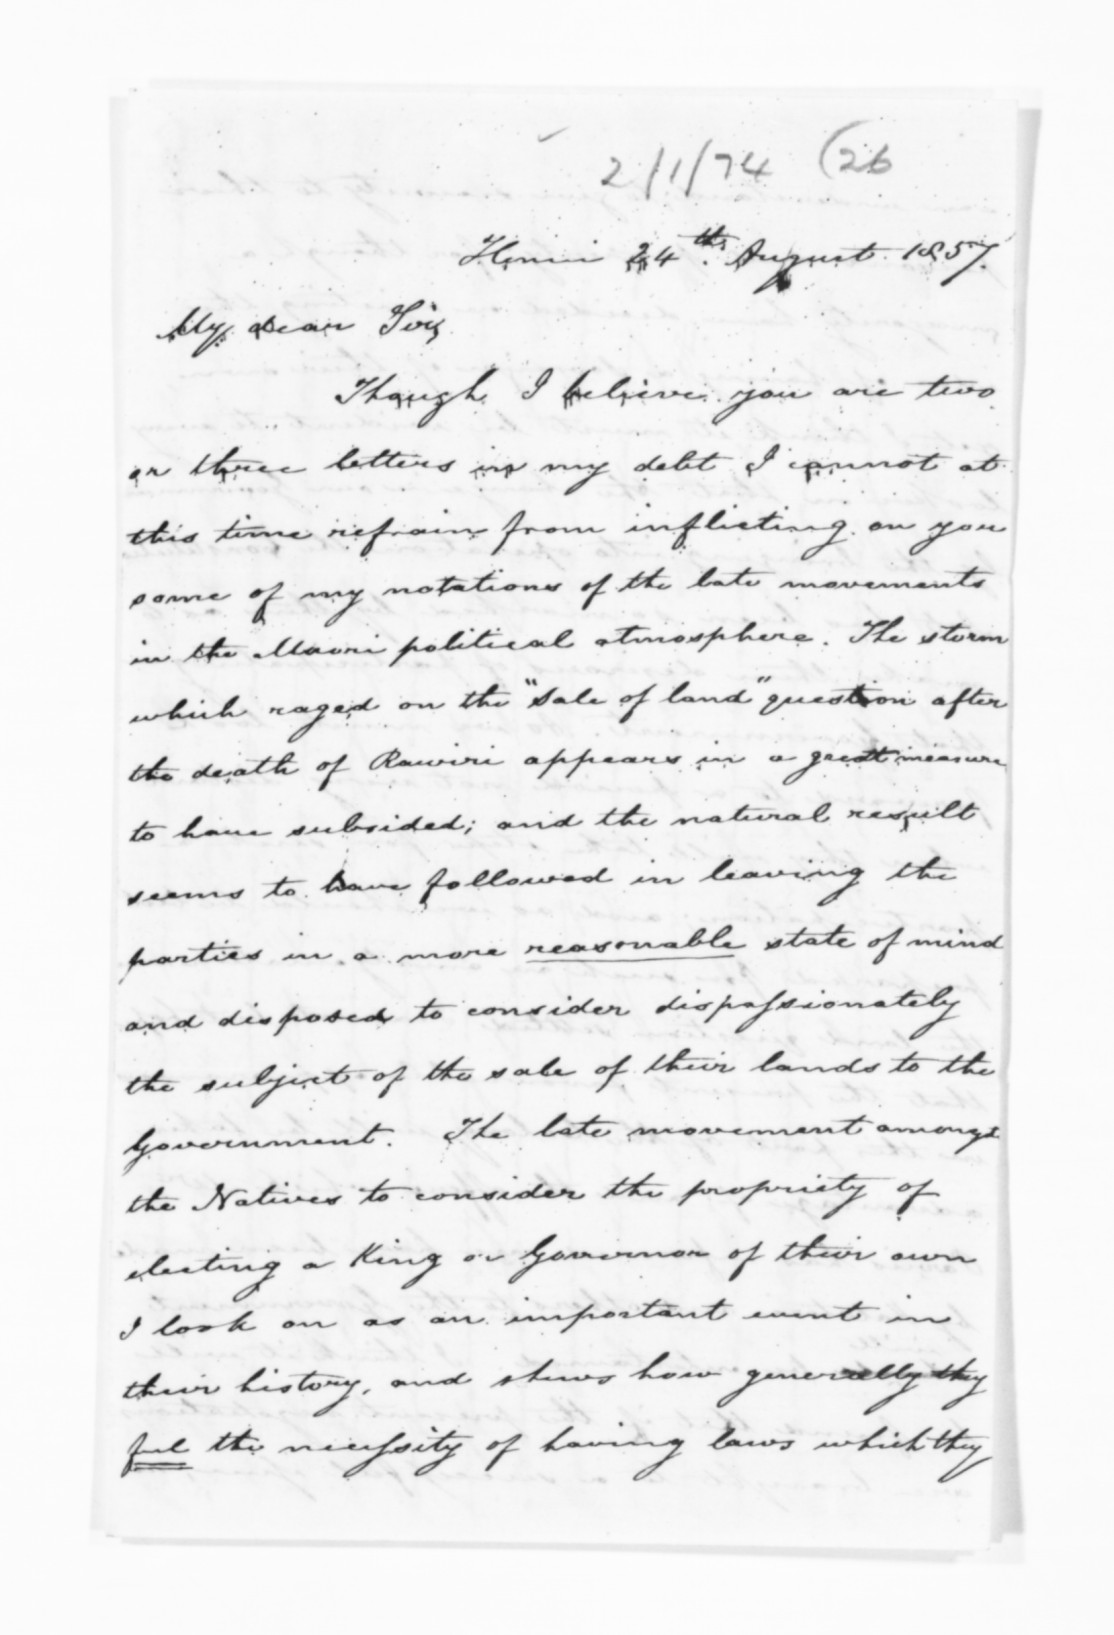 2/1/74 (26
24th. August. 1857.
My dear Sir,
Though I believe you are two
or three letters in my debt I cannot at
this time refrain from inflicting on you
some of my notations of the late movements
in the Maori political atmosphere. The storm
which raged on the "Sale of land" question after
the death of Rawiri appears in a great measure
to have subsided; and the natural result
seems to have followed in leaving the
parties in a more reasonable state of mind
and disposed to consider dispassionately
the subject of the sale of their lands to the
Government. The late movement amongst
the Natives to consider the propriety of
electing a King or Governor of their own
I look on as an important event in
their history, and shews how generally they
feel the necessity of having laws which they